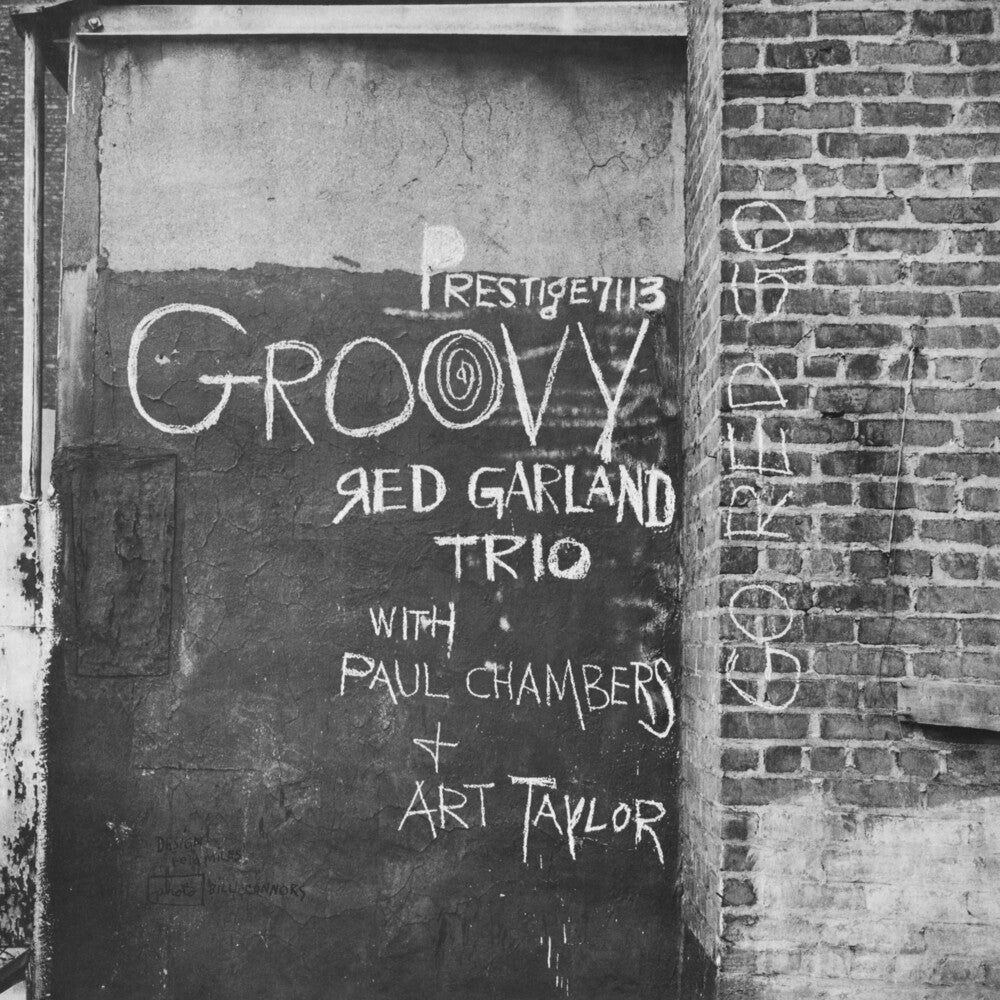 PRESTIgE7113
GROOVY
RED GARLAND
TRIO
WITH
PAUL CHAMBERS
+
ART TAYLOR
GO RED GO
DESIGN
MILES
photo BILL CONNORS